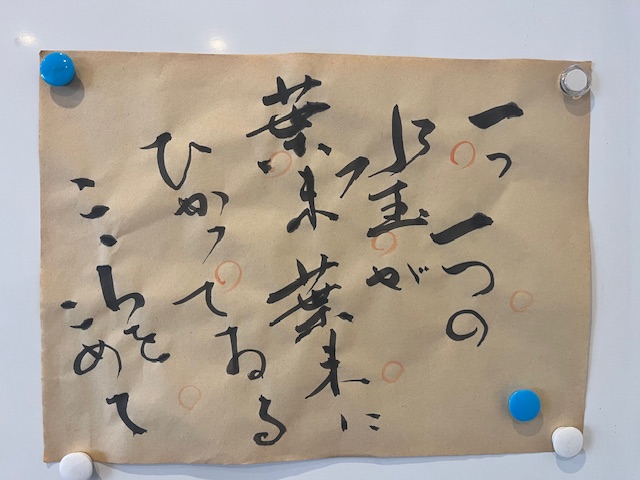 一つ一つの
玉が
葉末葉末に
ひかっておる
こころをこめて